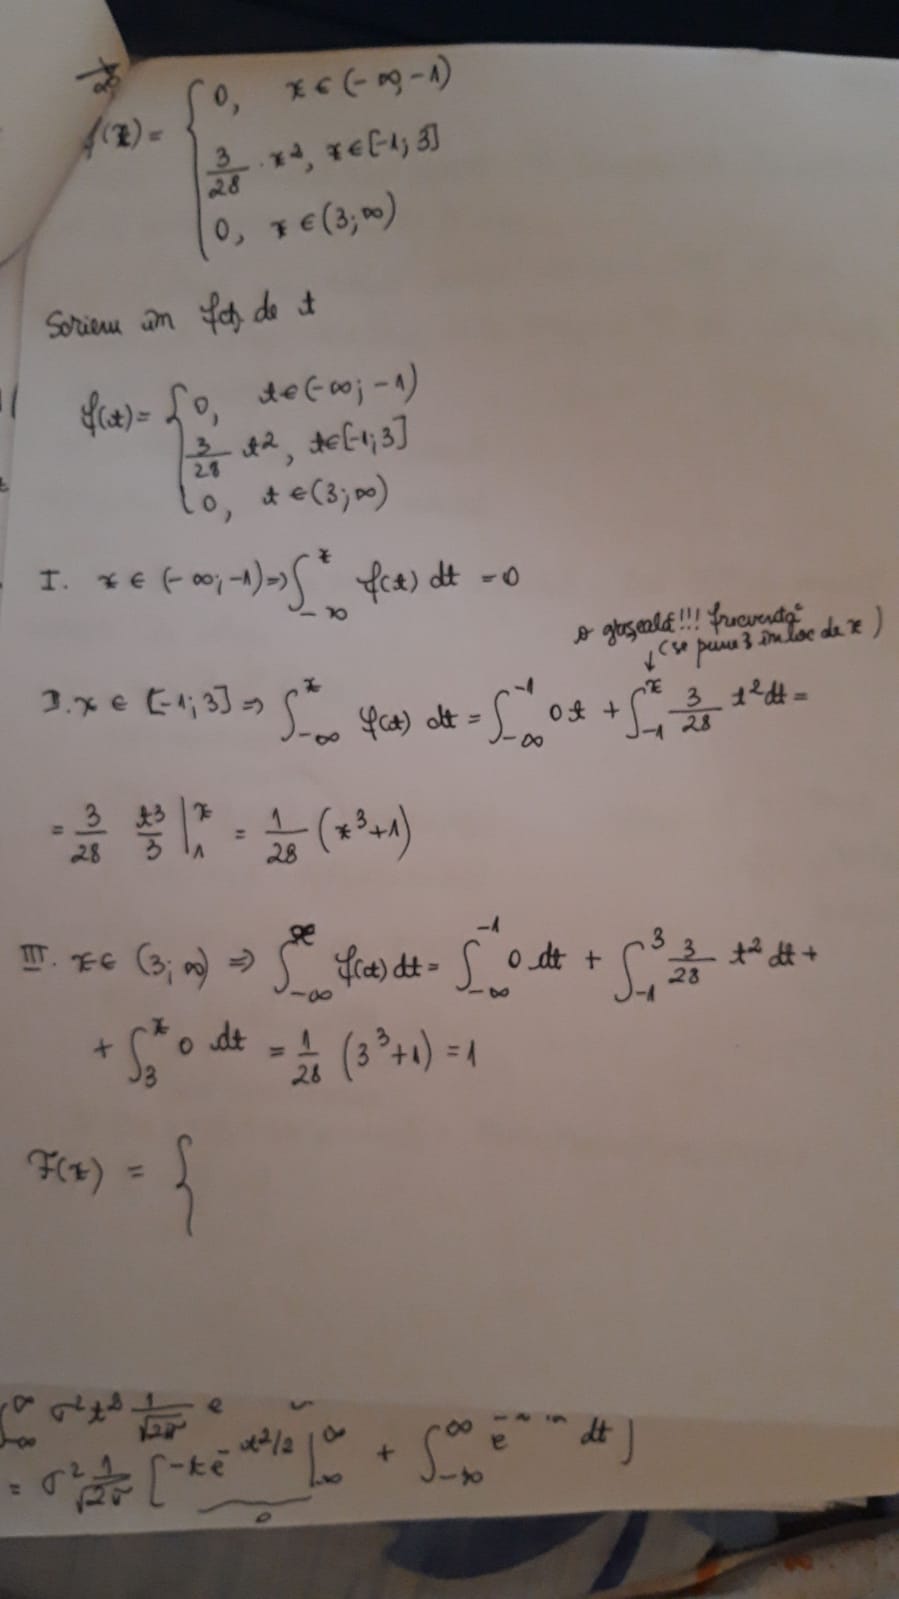 f(x) = { 0, x ∈ (-∞, -1)
3/28 · x², x ∈ [-1; 3]
0, x ∈ (3; ∞)
Scriem în fcț de t
f(t) = { 0, t ∈ (-∞; -1)
3/28 t², t ∈ [-1; 3]
0, t ∈ (3; ∞)
I. x ∈ (-∞; -1) => ∫_{-∞}^{x} f(t) dt = 0
o greșeală!!! frecventă
(se pune 3 în loc de x)
I. x ∈ [-1; 3] => ∫_{-∞}^{x} f(t) dt = ∫_{-∞}^{-1} 0 t + ∫_{-1}^{x} 3/28 t² dt =
= 3/28 t³/3 |_{1}^{x} = 1/28 (x³+1)
III. x ∈ (3; ∞) => ∫_{-∞}^{x} f(t) dt = ∫_{-∞}^{-1} 0 dt + ∫_{-1}^{3} 3/28 t² dt +
+ ∫_{3}^{x} 0 dt = 1/28 (3³+1) = 1
F(x) = {
= σ² 1/√2π [-t e^{-t²/2} |_{-∞}^{∞} + ∫_{-∞}^{∞} e dt]
0